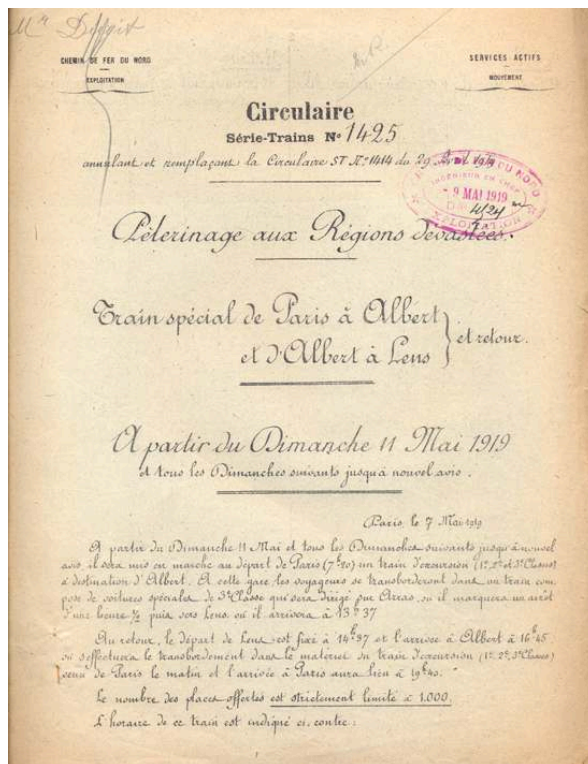 CHEMIN DE FER DU NORD
EXPLOITATION
SERVICES ACTIFS
MOUVEMENT
Circulaire
Série-Trains Nº 1425
annulant et remplaçant la Circulaire ST Nº 1414 du 29 Avril 1919
DU NORD
INGÉNIEUR EN CHEF
9 MAI 1919
4124
Pèlerinage aux Régions dévastées.
Train spécial de Paris à Albert
et d'Albert à Lens
et retour.
A partir du Dimanche 11 Mai 1919
et tous les Dimanches suivants jusqu'à nouvel avis.
Paris, le 7 Mai 1919
A partir du Dimanche 11 Mai et tous les Dimanches suivants jusqu'à nouvel
avis, il sera mis en marche au départ de Paris (7h20) un train d'excursion (1e, 2e et 3e Classes)
à destination d'Albert. A cette gare les voyageurs se transborderont dans un train com
posé de voitures spéciales de 3e Classe qui sera dirigé par Arras, où il marquera un arrêt
d'une heure ½ puis vers Lens où il arrivera à 13h37
Au retour, le départ de Lens est fixé à 14h37 et l'arrivée à Albert à 16h45
où s'effectuera le transbordement dans le matériel du train d'excursion (1e, 2e, 3e Classes)
venu de Paris le matin et l'arrivée à Paris aura lieu à 19h40.
Le nombre des places offertes est strictement limité à 1.000.
L'horaire de ce train est indiqué ci. contre :